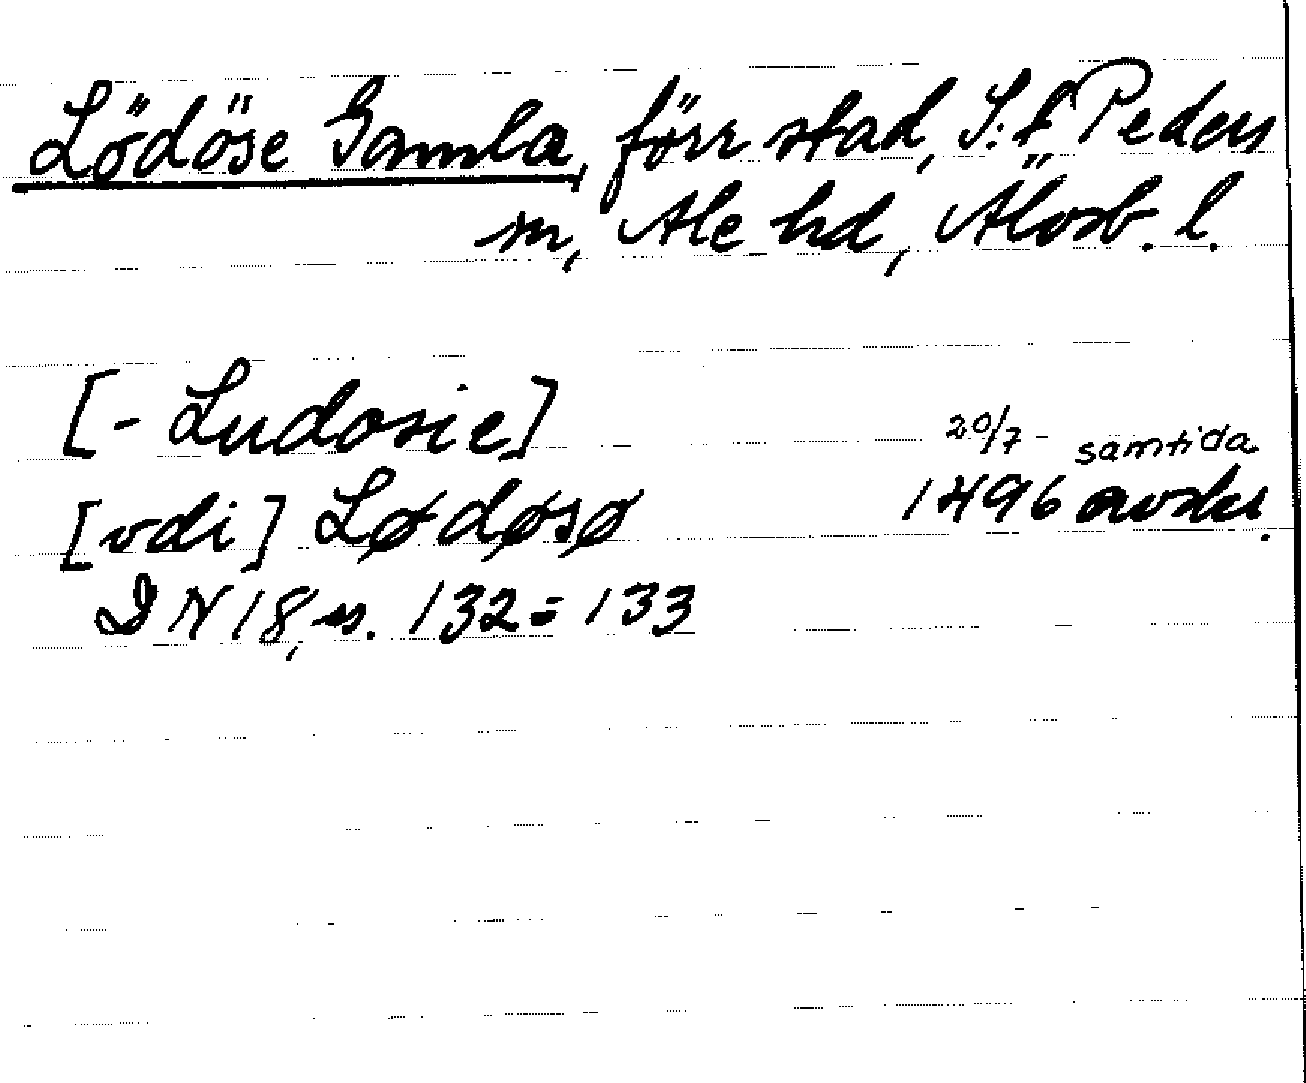 Lödöse Gamla, förr stad, S:t Peders
sn, Ale hd, Älvsb. l.
[- Ludosie] 20/7 - samtida
[vdi] Lødøsø 1496 avskr.
DN 18, s. 132 = 133